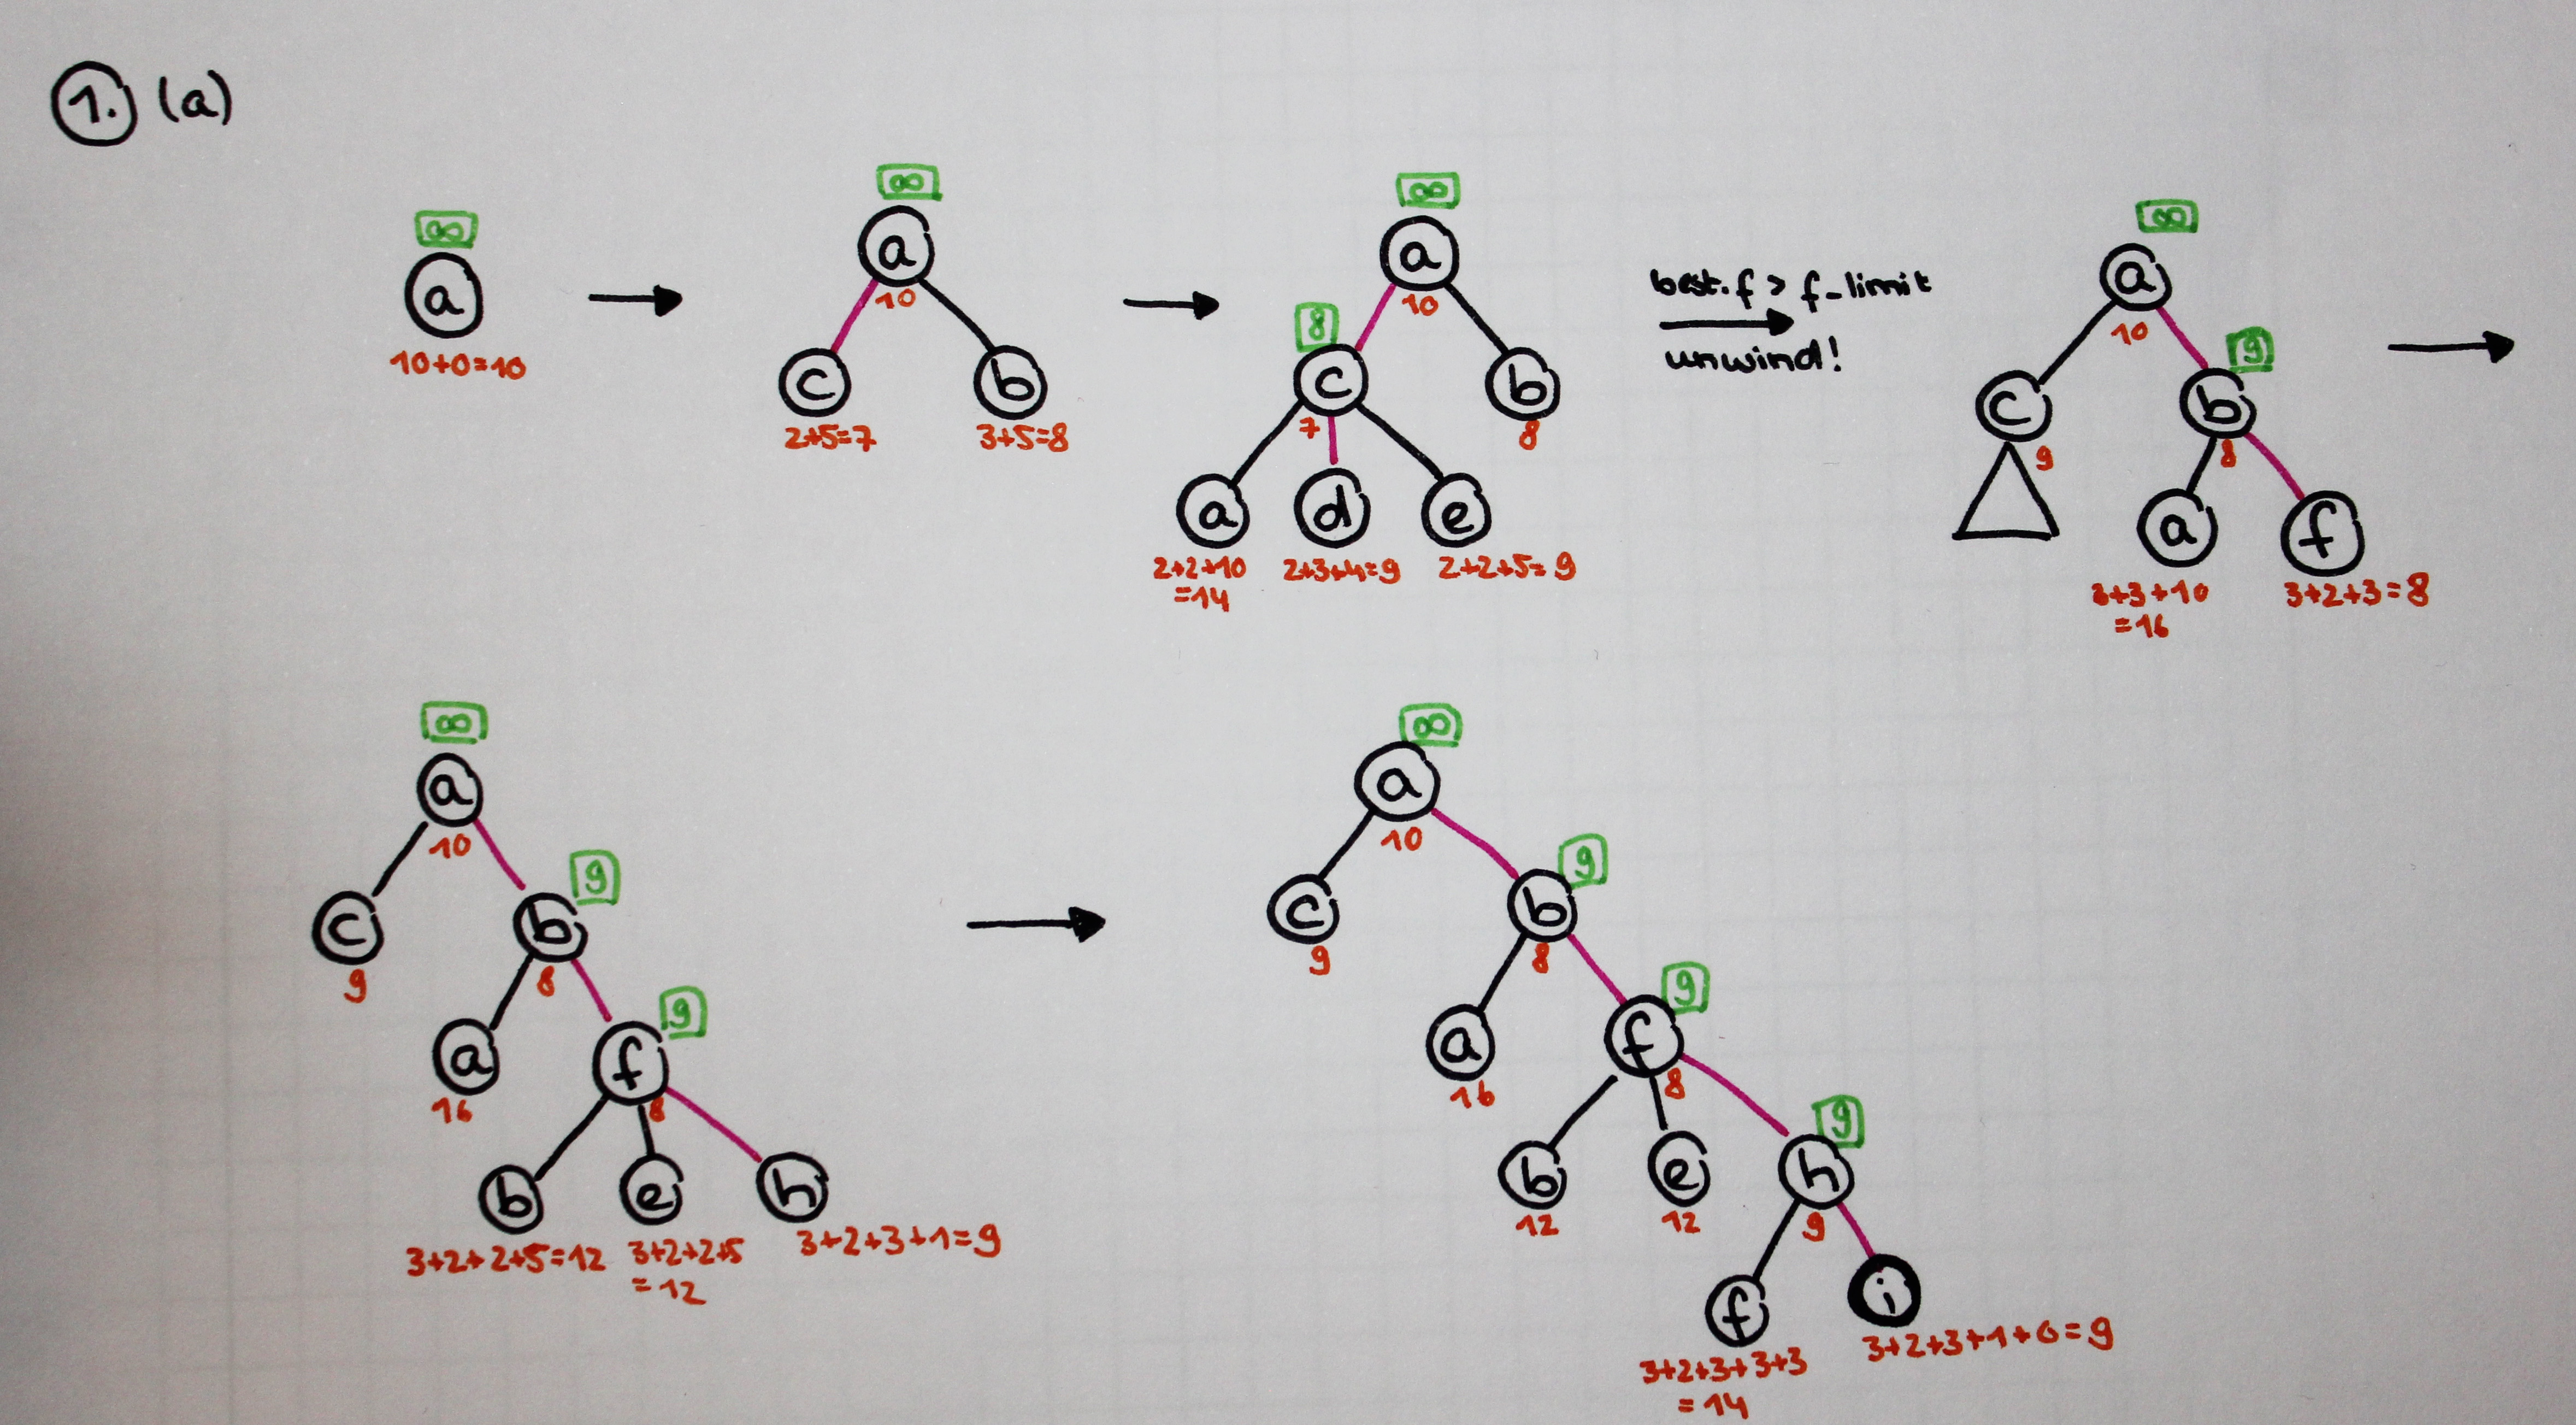 1. (a)
∞
a
10+0=10
∞
a
10
c
b
2+5=7
3+5=8
∞
a
10
8
c
7
b
8
a
d
e
2+2+10
=14
2+3+4=9
2+2+5=9
best.f > f-limit
unwind!
∞
a
10
c
9
9
b
8
a
f
3+3+10
=16
3+2+3=8
∞
a
10
c
9
9
b
8
a
16
9
f
8
b
e
h
3+2+2+5=12
3+2+2+5
=12
3+2+3+1=9
∞
a
10
c
9
9
b
8
a
16
9
f
8
b
12
e
12
9
h
9
f
i
3+2+3+3+3
=14
3+2+3+1+0=9